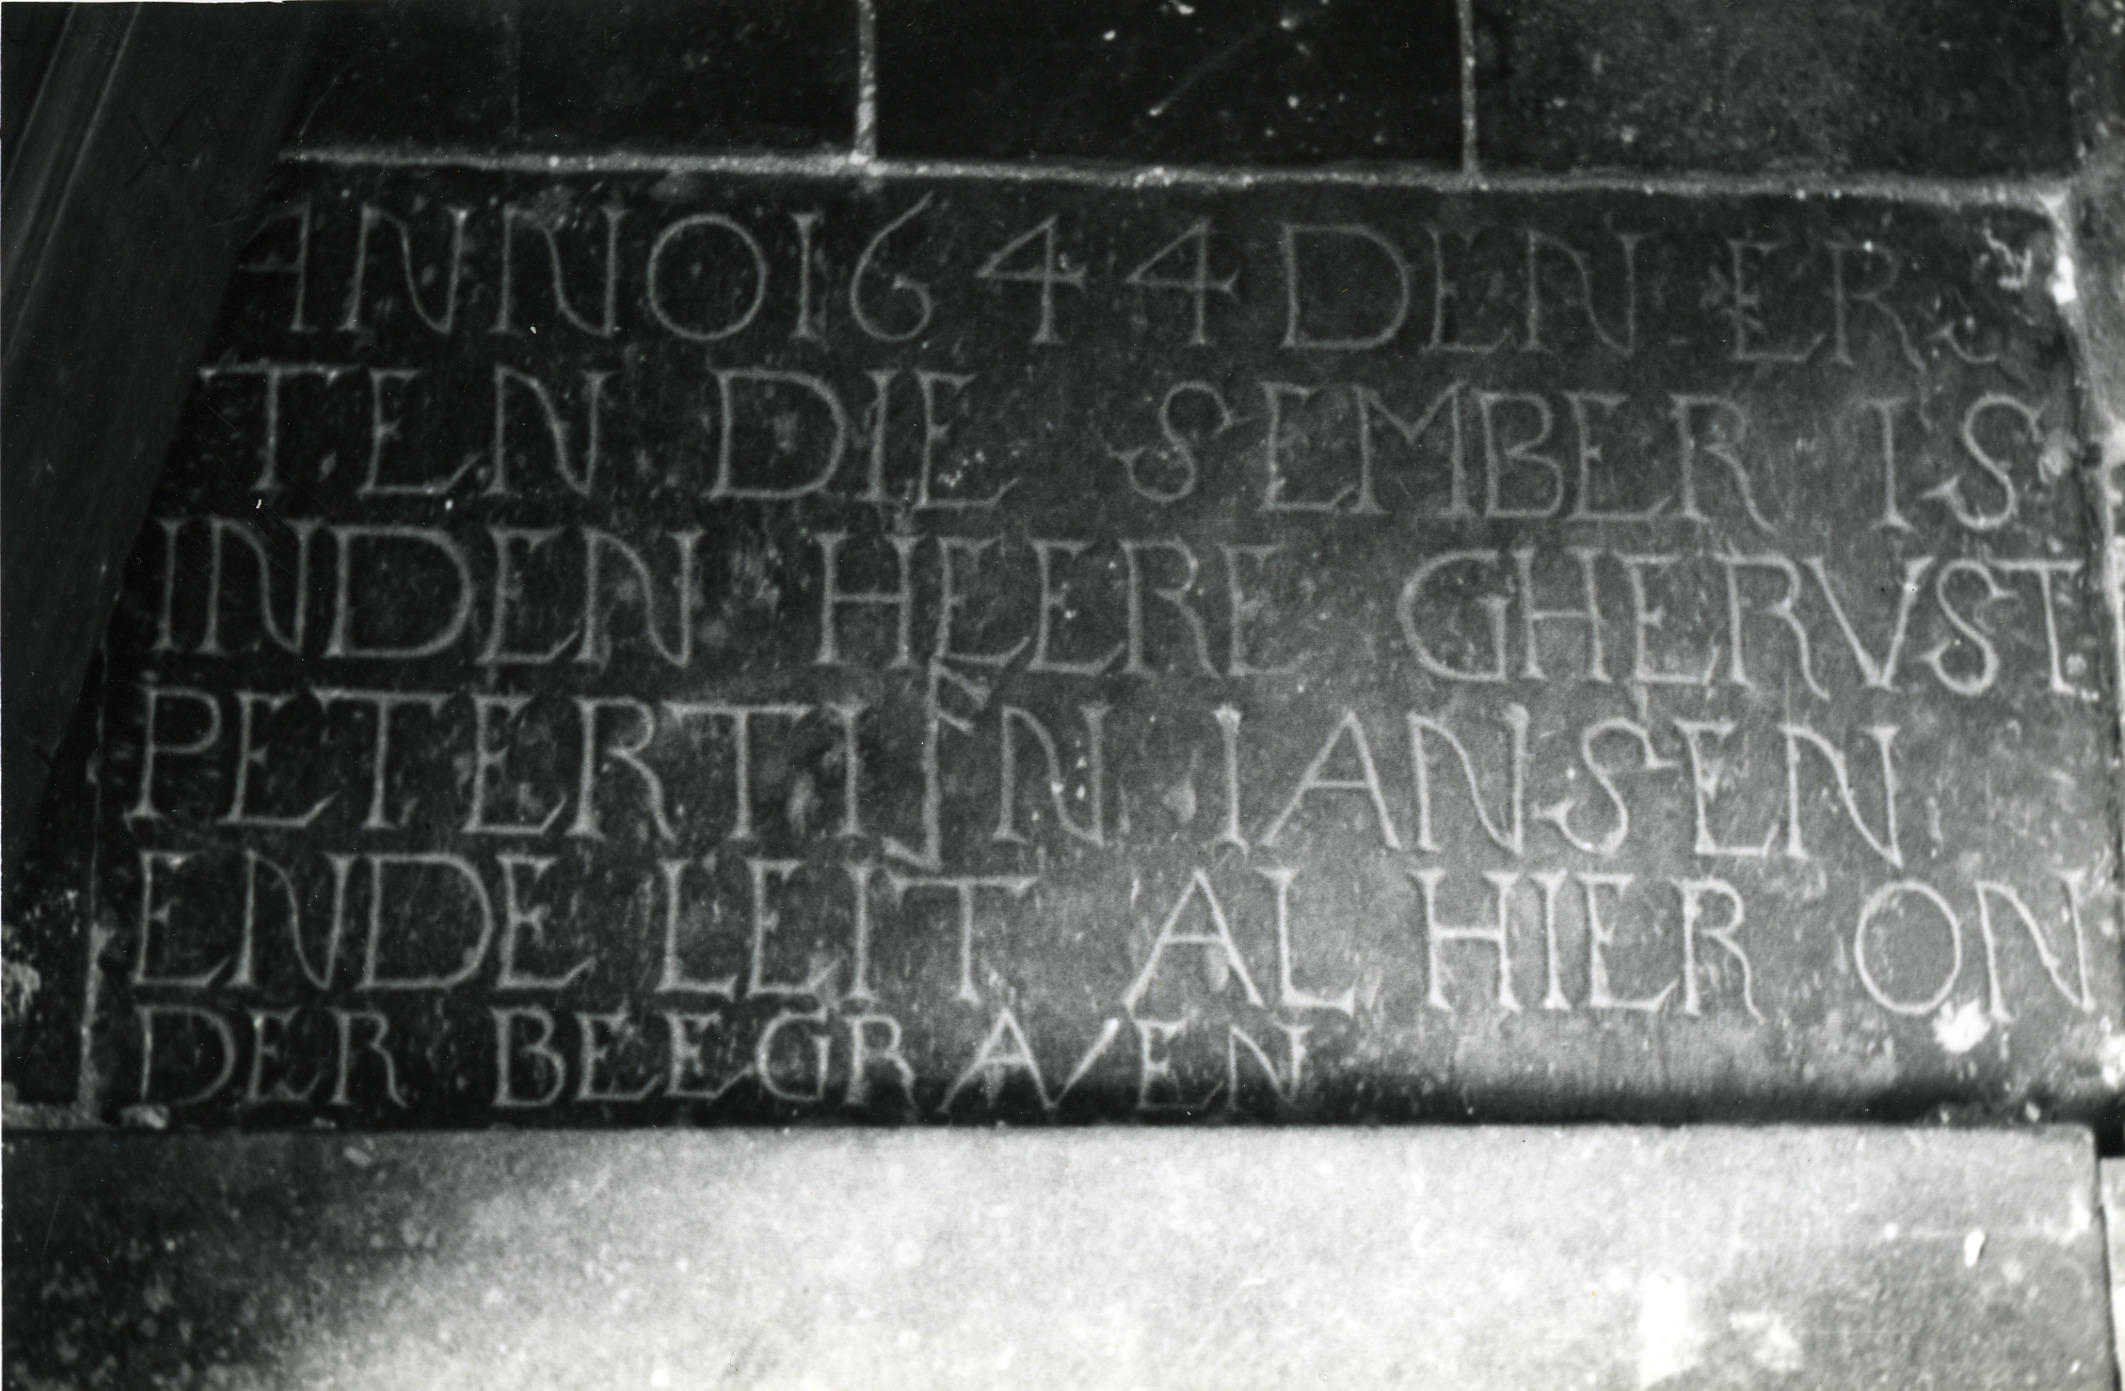 ANNO 1644 DEN ERS
TEN DIE SEMBER IS
INDEN HEERE GHERVST
PETERTIJEN IANSEN
ENDE LEIT AL HIER ON
DER BEEGRAVEN